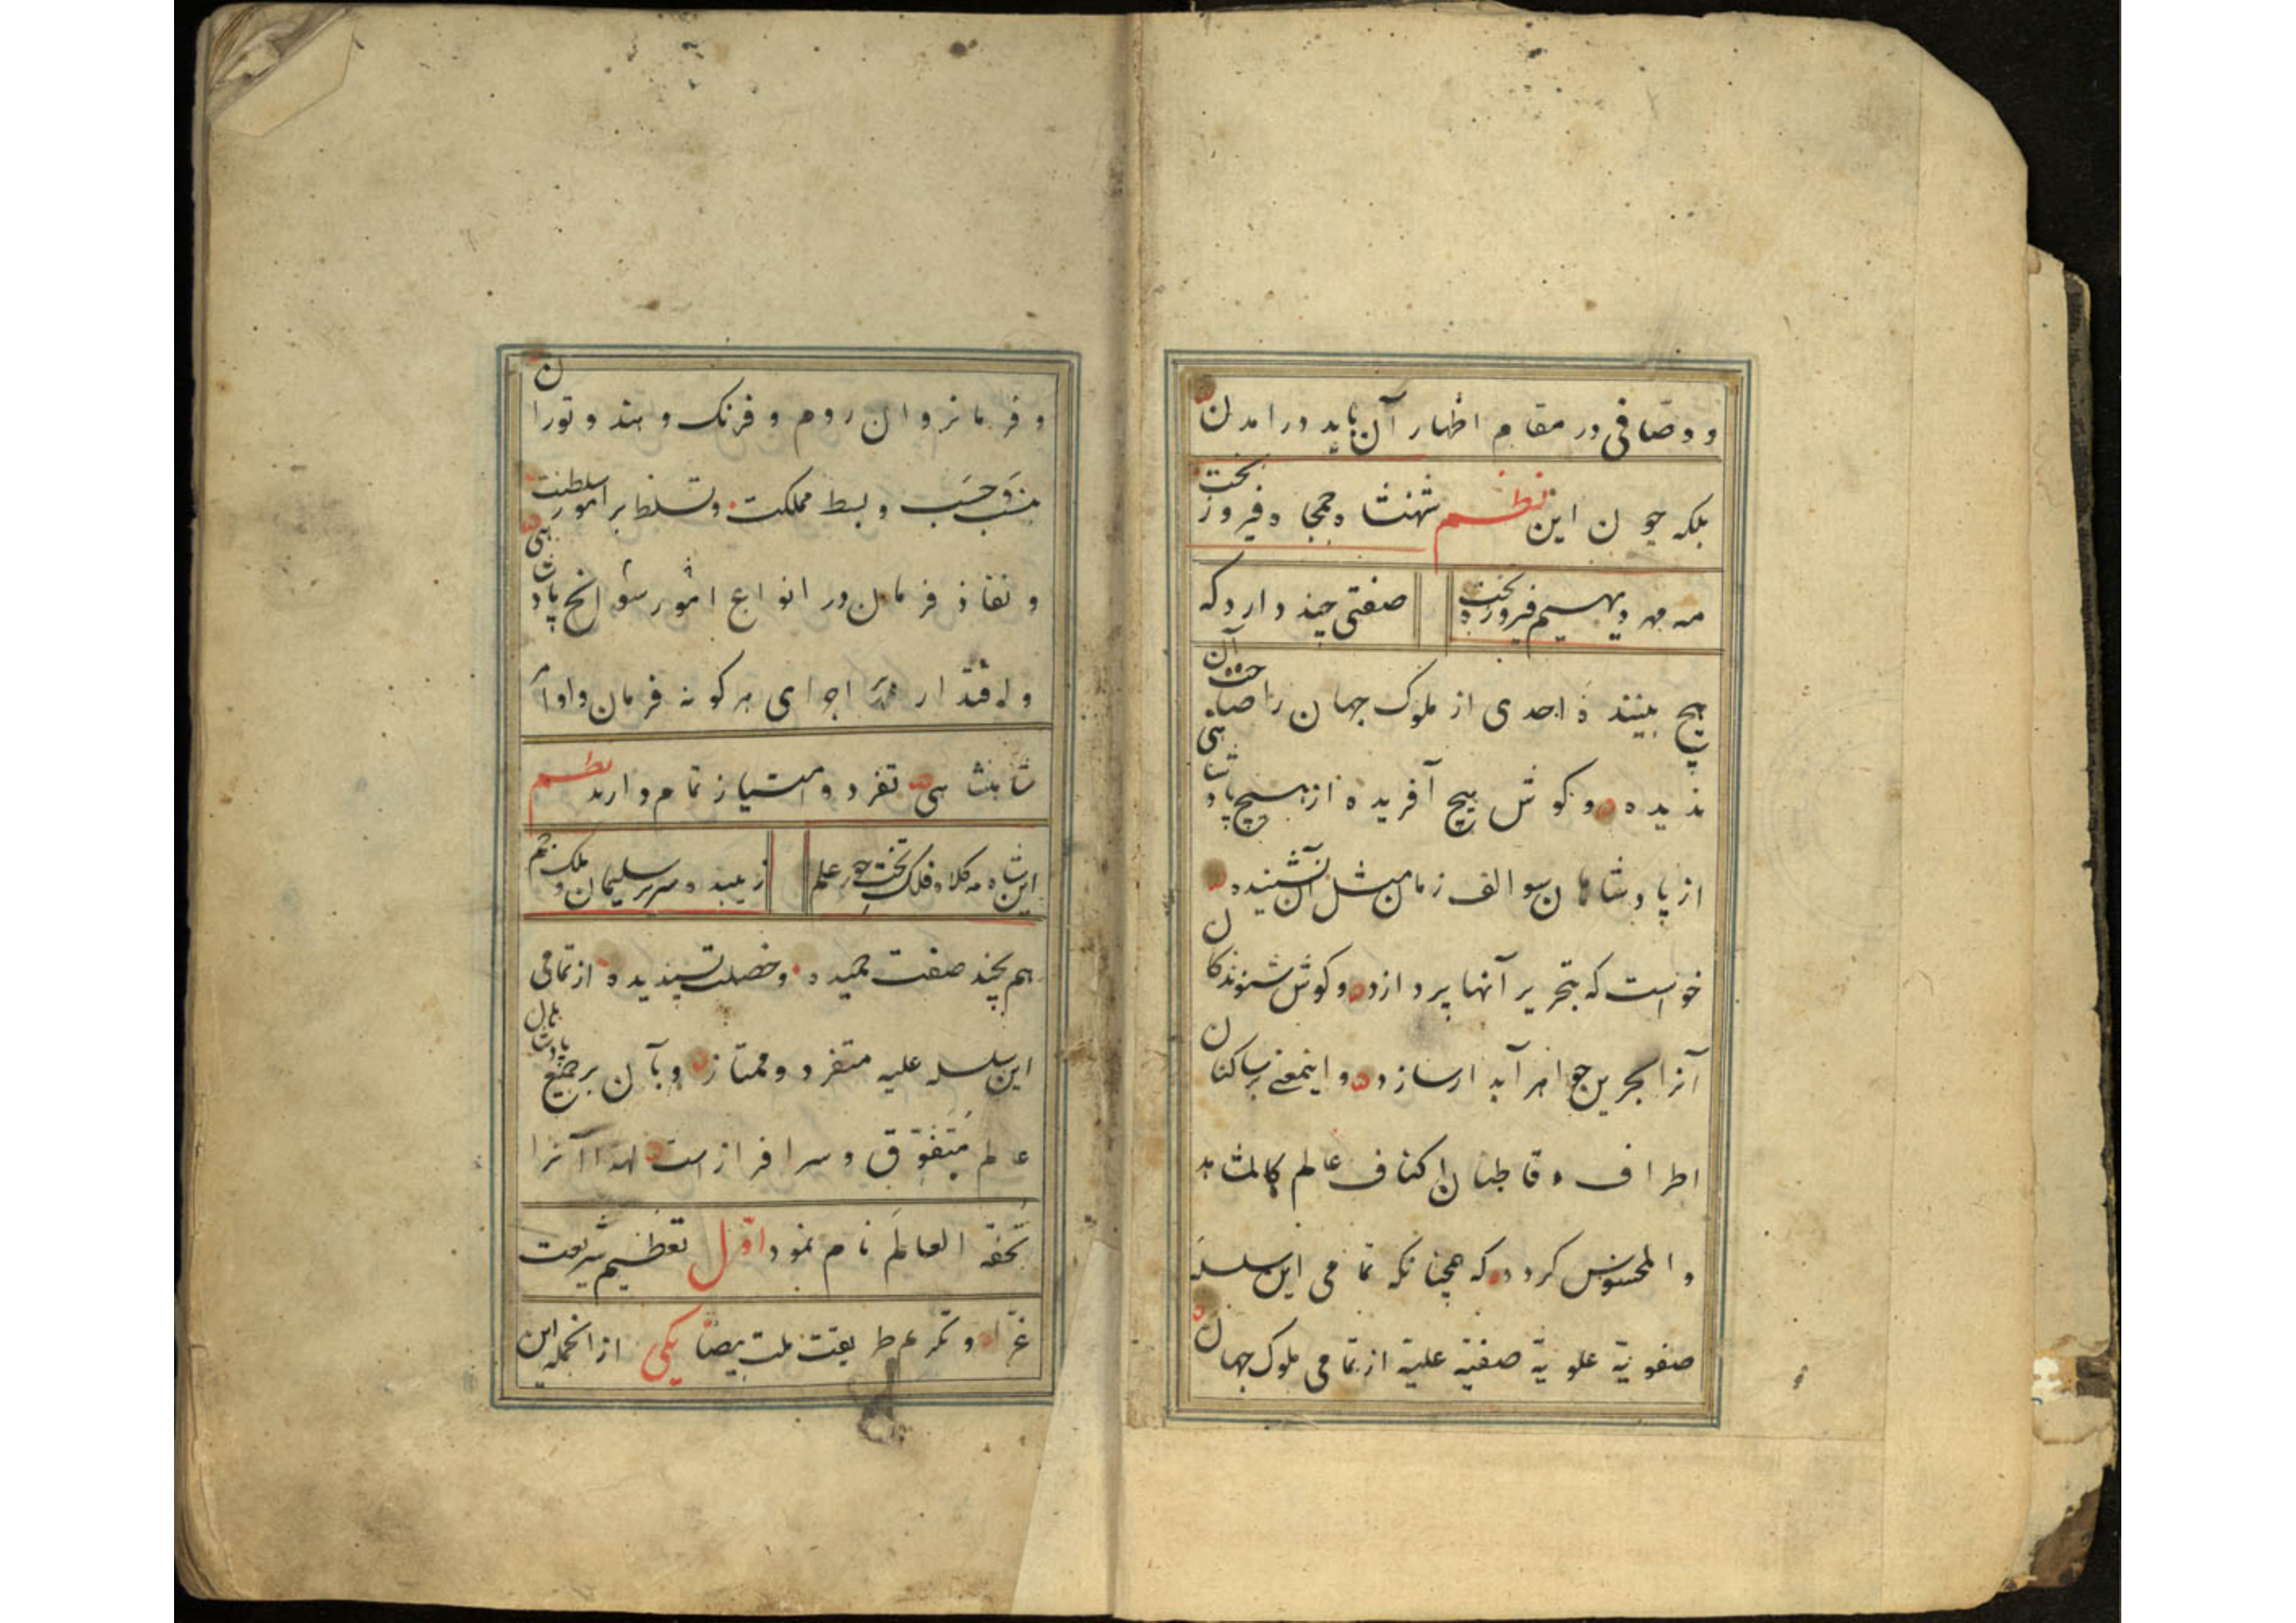 و وصّافی در مقام اظهار آن باید درامدن
بلکه چون این نظم شهنشاه جمجاه فیروز بخت
مه مهر دیهیم فیروزه تخت صفتی چند دارد که
هیچ بیننده احدی از ملوک جهان را صاحب آن
ندیده و کوش هیچ آفریده از هیچ پادشاهی
از پادشاهان سوالف زمان مثل آن نشنیده
خواست که بتحریر آنها پردازد و کوش شنوندکان
آنرا بحرین جواهر آبدار سازد و اینمعنی بر ساکنان
اطراف و قاطنان اکناف عالم کالمشاهد
و المحسوس کردد که همچنانکه تمامی این سلسله
صفویّه علویّه صفیّه علیّه از تمامی ملوک جهان
و فرمانروان روم و فرنک و هند و توران
بنسَب و حسَب و بسط مملکت و تسلط بر امور سلطنت
و نفاذ فرمان در انواع امور سوانح پادشاهی
و اقتدار اجرای هرکونه فرمان و اوامر
شاهنشاهی تفرد و امتیاز تمام دارند نظم
این شاه مه کلاه فلک تخت خور علم زیبنده سریر سلیمان و ملک جم
هم بچند صفت حمیده و خصلت پسندیده از تمامی
این سلسله علیه متفرد و ممتاز و بآن بر جمیع پادشاهان
عالم مُتَفَوّق و سرافراز است لهذا آنرا
تُحفَة العالَم نام نمود اوّل تعظیم شریعت
غرّا و تکریم طریقت ملت بیضا یکی از انجمله این